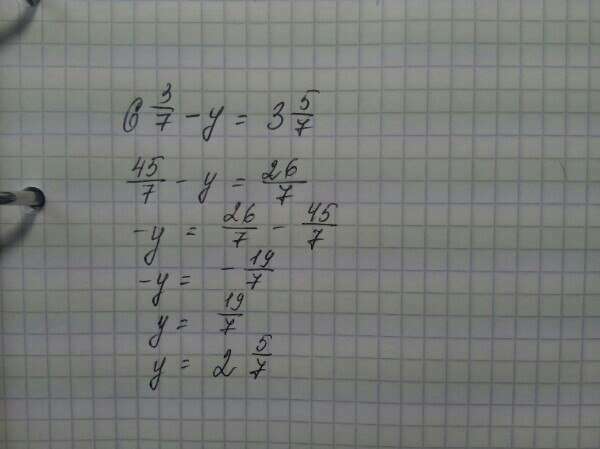 6 3/7 - y = 3 5/7
45/7 - y = 26/7
-y = 26/7 - 45/7
-y = - 19/7
y = 19/7
y = 2 5/7